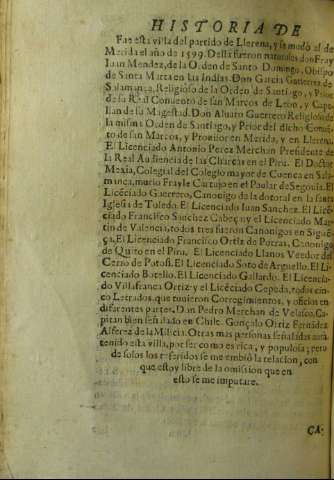 HISTORIA DE
Fue esta villa del partido de Llerena, y se mudò al de
Merida el año de 1599. Della fueron naturales don Fray
Iuan Mendez, de la Orden de Santo Domingo, Obispo
de Santa Marta en las Indias. Don Garcia Gutierrez de
Salamanca, Religioso de la Orden de Santiago, y Prior
de su Real Conuento de san Marcos de Leon, y Cape-
llan de su Magestad. Don Aluaro Guerrero Religioso de
la misma Orden de Santiago, y Prior del dicho Conuen-
to de san Marcos, y Prouisor en Merida, y en Llerena.
El Licenciado Antonio Perez Merchan Presidente de
la Real Audiencia de las Charcas en el Piru. El Doctor
Mexia, Colegial del Colegio mayor de Cuenca en Sala-
manca, murio Frayle Cartujo en el Paular de Segouia. El
Licēciado Guerrero, Canonigo de la dotoral en la santa
Iglesia de Toledo. El Licenciado Iuan Sanchez. El Licē-
ciado Francisco Sanchez Cabeça, y el Licenciado Mar-
tin de Valencia, todos tres fueron Canonigos en Siguē-
ça. El Licenciado Francisco Ortiz de Porras, Canonigo
de Quito en el Piru. El Licenciado Llanos Veedor del
Cerro de Potosi. El Licenciado Sito de Arguello. El Li-
cenciado Botello. El Licenciado Gallardo. El Licencia-
do Villafranca Ortiz y el Licēciado Cepeda, todos cin-
co Letrados, que tuuieron Corregimientos, y oficios en
diferentes partes. Don Pedro Merchan de Velasco, Ca-
pitan bien señalado en Chile. Gonçalo Ortiz Fernādez
Alferez de la Milicia. Otras mas personas señaladas aurà
tenido esta villa, por ser como es rica, y populosa; pero
de solos los referidos se me embiò la relacion, con
que estoy libre de la omission que en
esto se me imputare.
CA-